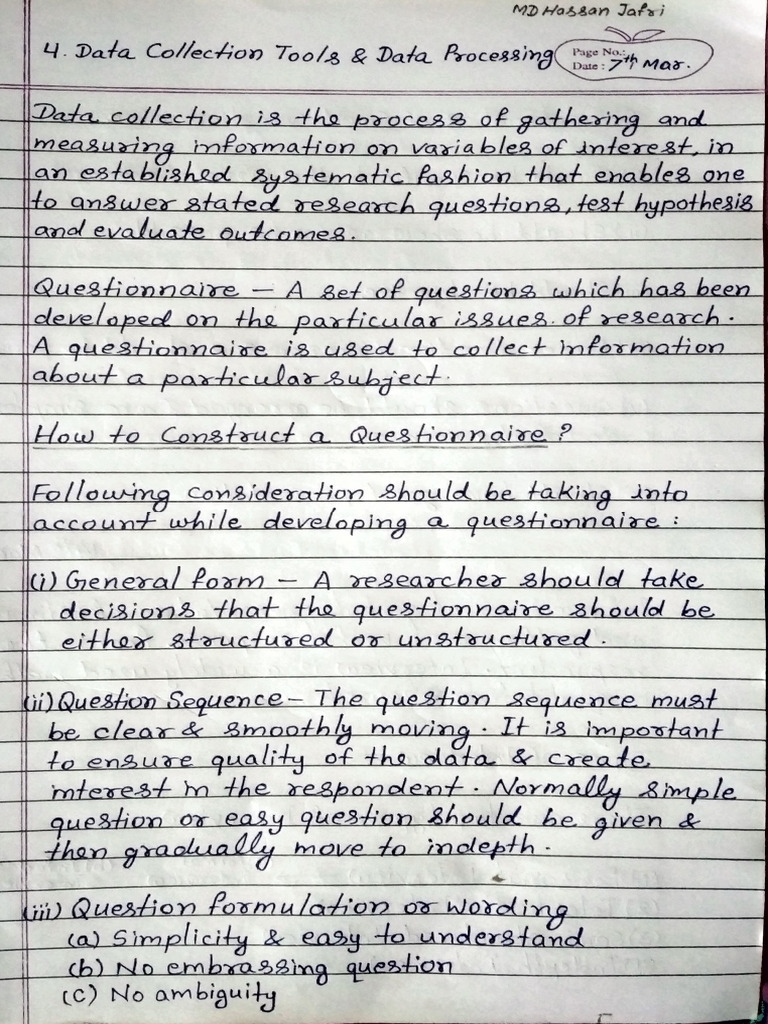 MD Hassan Jafri
4. Data Collection Tools & Data Processing
Page No.:
Date: 7th Mar.
Data collection is the process of gathering and
measuring information on variables of interest, in
an established systematic fashion that enables one
to answer stated research questions, test hypothesis
and evaluate outcomes.
Questionnaire – A set of questions which has been
developed on the particular issues. of research.
A questionnaire is used to collect information
about a particular subject.
How to Construct a Questionnaire?
Following consideration should be taking into
account while developing a questionnaire:
(i) General form – A researcher should take
decisions that the questionnaire should be
either structured or unstructured.
(ii) Question Sequence – The question sequence must
be clear & smoothly moving. It is important
to ensure quality of the data & create
interest in the respondent. Normally simple
question or easy question should be given &
then gradually move to indepth.
(iii) Question formulation or wording
(a) Simplicity & easy to understand
(b) No embrassing question
(c) No ambiguity